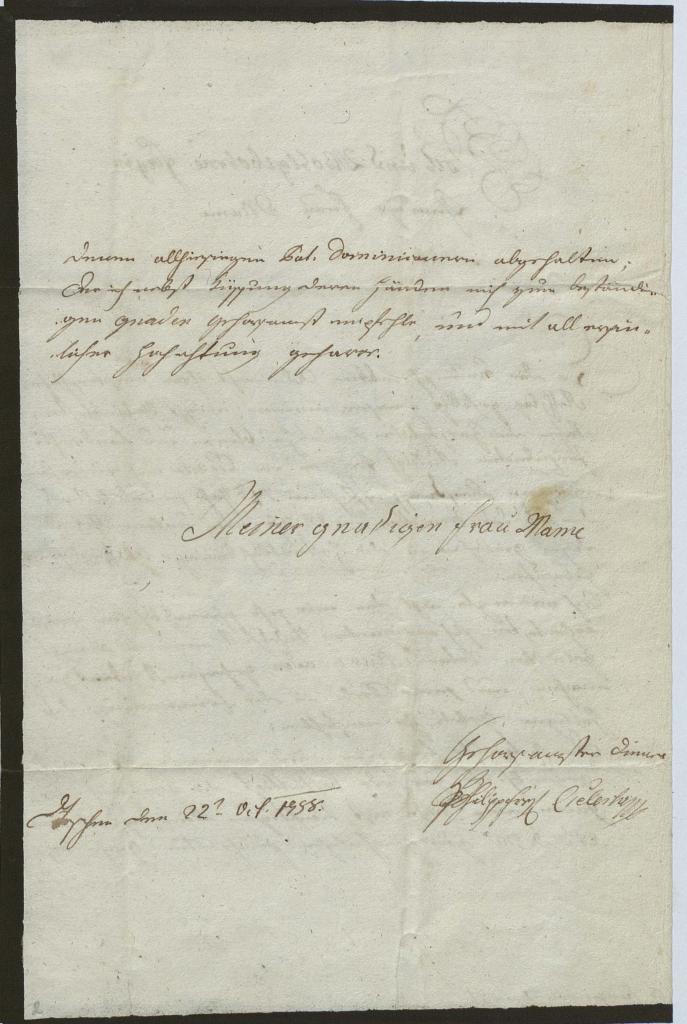 denen allhiesigen Pat. Dominicanern abgehalten;
der ich nebst Küssung deren Händen mich zum beständi-
gen gnaden gehorsamst empfehle, und mit all ersin-
licher Hochachtung geharre.
Meiner gnädigen Frau Mame
Gehorsamster Diener
Philipp
Teschen den 22t Oct.